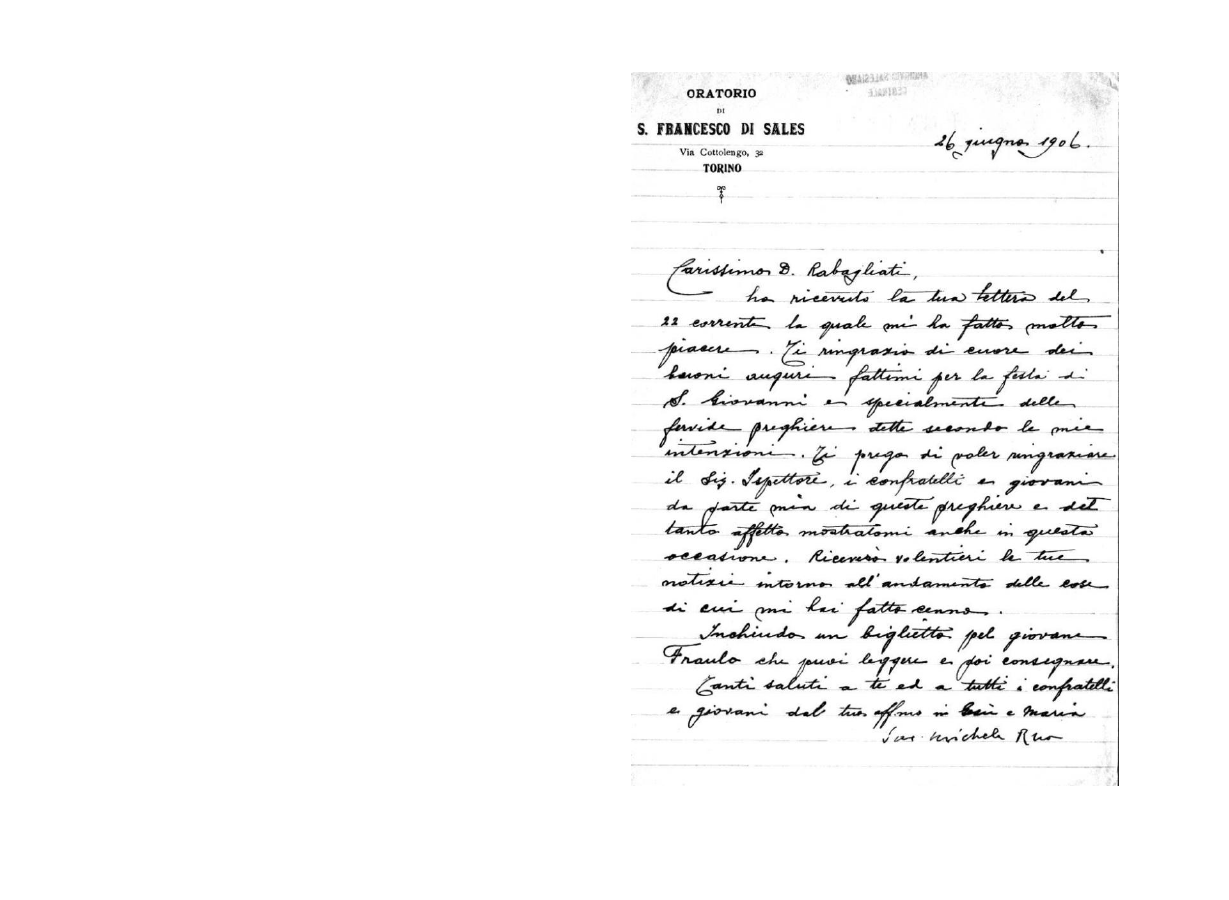 ORATORIO
DI
S. FRANCESCO DI SALES
Via Cottolengo, 32
TORINO
ARCHIVIO SALESIANO
CENTRALE
26 giugno 1906.
Carissimo D. Rabagliati,
ho ricevuto la tua lettera del
22 corrente la quale mi ha fatto molto
piacere. Ti ringrazio di cuore dei
buoni auguri fattimi per la festa di
S. Giovanni e specialmente delle
fervide preghiere dette secondo le mie
intenzioni. Ti prego di voler ringraziare
il Sig. Ispettore, i confratelli e giovani
da parte mia di queste preghiere e del
tanto affetto mostratomi anche in questa
occasione. Riceverò volentieri le tue
notizie intorno all'andamento delle cose
di cui mi hai fatto cenno.
Inchiudo un biglietto pel giovane
Fraulo che puoi leggere e poi consegnare.
Tanti saluti a te ed a tutti i confratelli
e giovani dal tuo aff.mo in Gesù e Maria
Sac. Michele Rua